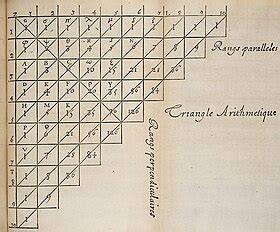 1 2 3 4 5 6 7 8 9 10
1 1 1 1 1 1 1 1 1 1 1
2 1 2 3 4 5 6 7 8 9
Rangs paralleles
A B C
3 1 3 6 10 15 21 28 36
D E F
4 1 4 10 20 35 56 84
Triangle Arithmetique
H M K
5 1 5 15 35 70 126
P Q
6 1 6 21 56 126
V
7 1 7 28 84
8 1 8 36
9 1 9
10 1
Rangs perpendiculaires